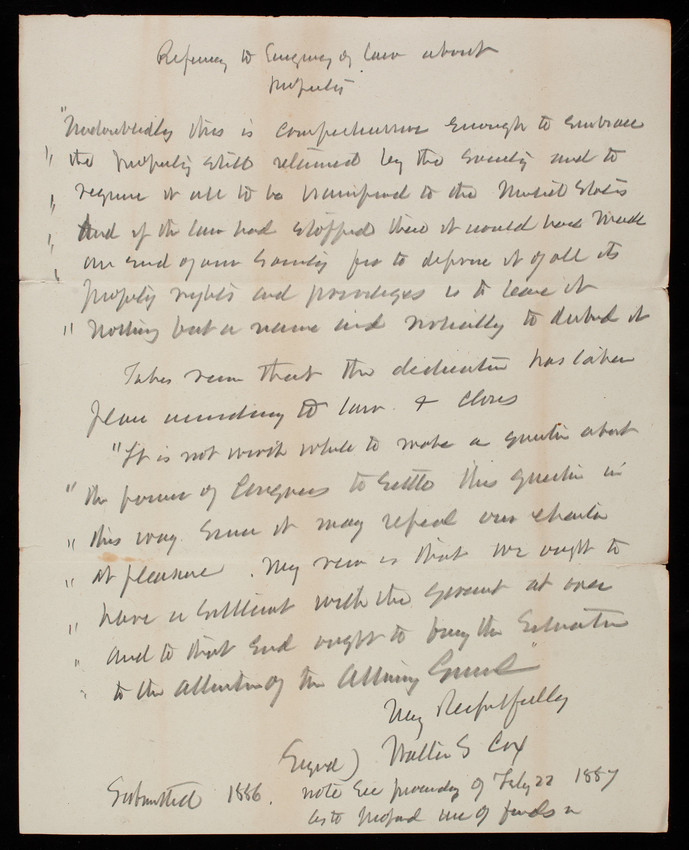 Refering to Enquiry of law about
property
"Undoubtedly this is comprehensive enough to embrace
" the property still retained by the Society and to
" require it all to be transferred to the United States
" And if the law had stopped there it would have made
" an end of our Society for to deprive it of all its
property rights and privileges is to leave it
" nothing but a name and virtually to disband it
Takes view that the dedication has taken
place according to law & closes
"It is not worth while to make a question about
" the power of Congress to settle this question in
" this way since it may repeal our charter
" at pleasure. My view is that we ought to
" have a settlement with the Governmt at once
" and to that end ought to bring the Situation
" to the attention of the Attorney Genrl"
Very Respectfully
Signed) Walter S Cox
Submitted 1886. note See proceedg of Feby 22 1887
as to proposed use of funds